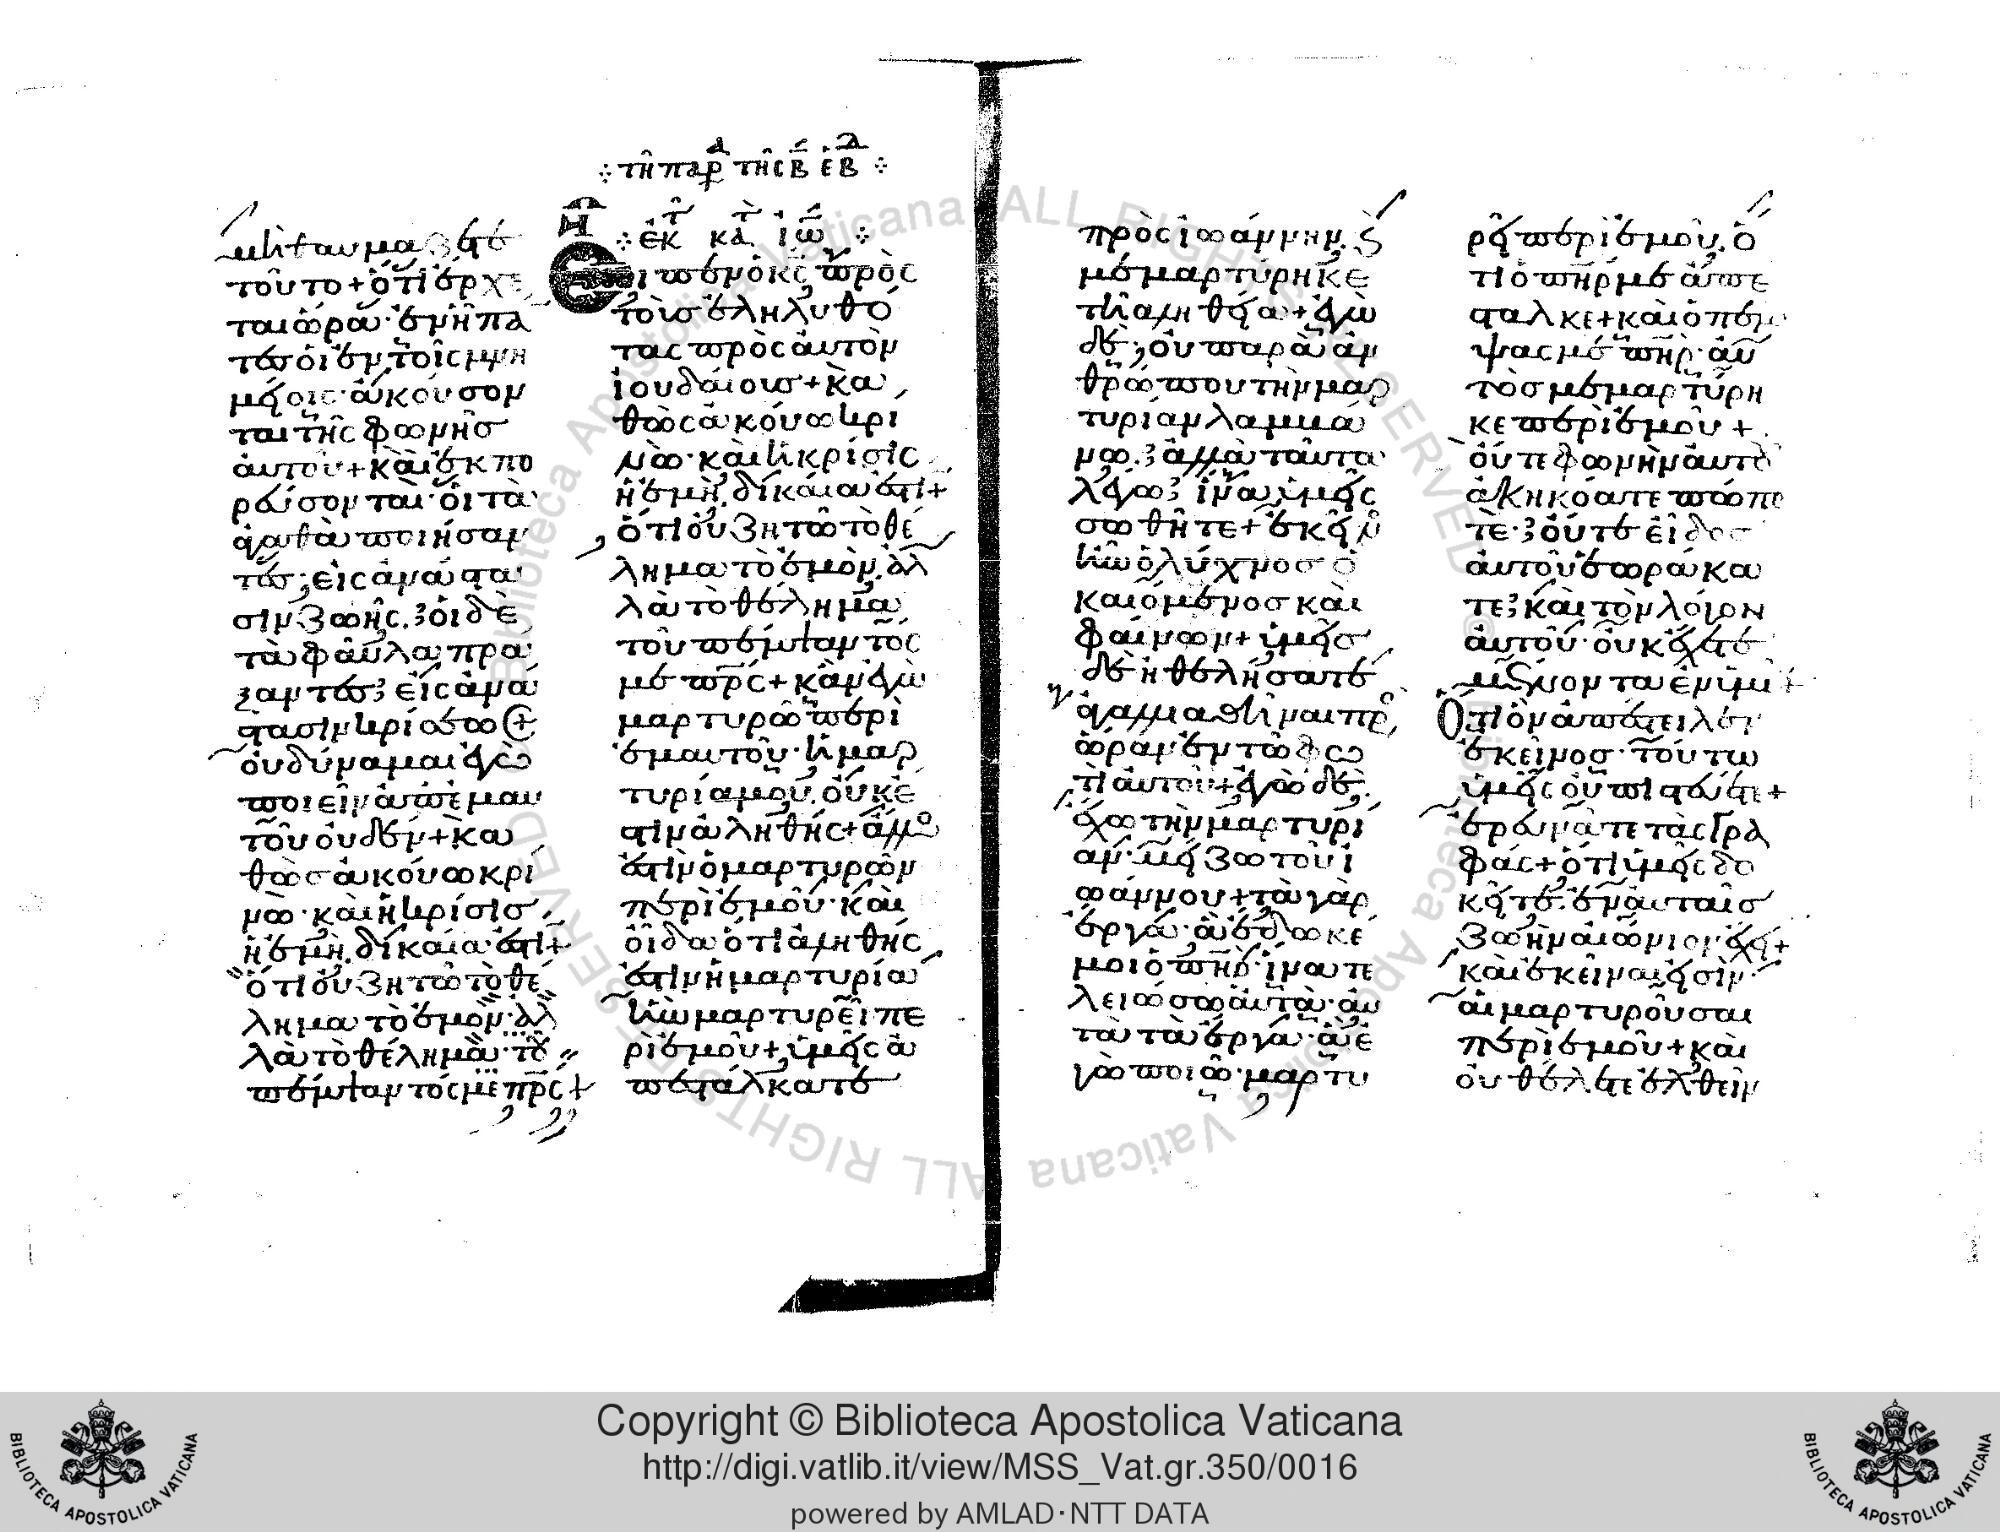 μὴ θαυμάζετε
τοῦτο + ὅτι ἔρχε
ται ὥρα· ἐν ἧ πά
τες οἱ ἐν τοῖς μνη
μείοις· ἀκούσον
ται τῆς φωνῆς
αὐτοῦ + καὶ ἐκπο
ρεύσονται· οἱ τὰ
ἀγαθὰ ποιήσαν
τες· εἰς ἀνάστα
σιν ζωῆς. οἱ δὲ
τὰ φαῦλα πρά
ξαντες εἰς ἀνά
στασιν κρίσεως
οὐ δύναμαι ἐγὼ
ποιεῖν ἀπ' ἐμαυ
τοῦ οὐδέν + κα
θὼς ἀκούω κρί
νω· καὶ ἡ κρίσις
ἡ ἐμὴ. δικαία ἐστὶ +
ὅτι οὐ ζητῶ τὸ θέ
λημα τὸ ἐμὸν· ἀλ
λὰ τὸ θέλημα· τοῦ
πέμψαντός με πρς +
τῆ παρ τῆς β ἑβδ
ἐκ τ κατ ἰω
Εἶπεν ὁ κς πρὸς
τοὺς ἐληλυθό
τας πρὸς αὐτὸν
ἰουδαίους + κα
θὼς ἀκούω κρί
νω· καὶ ἡ κρίσις
ἡ ἐμὴ. δικαία ἐστὶ +
ὅτι οὐ ζητῶ τὸ θέ
λημα τὸ ἐμὸν. ἀλ
λὰ τὸ θέλημα
τοῦ πέμψαντός
με πρς + κἀν ἐγὼ
μαρτυρῶ περὶ
ἐμαυτοῦ· ἡ μαρ
τυρία μου. οὐκ ἔ
στιν ἀληθής + ἄλλος
ἐστὶν ὁ μαρτυρῶν
περὶ ἐμοῦ· καὶ
οἶδα ὅτι ἀληθής
ἐστὶν ἡ μαρτυρία
ἣν μαρτυρεῖ πε
ρὶ ἐμοῦ + ὑμεῖς ἀ
πεστάλκατε
πρὸς ἰωάννην. καὶ
μεμαρτύρηκε
τῆ ἀληθεία + ἐγὼ
δὲ, οὐ παρὰ ἀν
θρώπου τὴν μαρ
τυρίαν λαμβά
νω. ἀλλὰ ταῦτα
λέγω ἵνα ὑμεῖς
σωθῆτε + ἐκεῖνος
ἦν ὁ λύχνος ὁ
καιόμενος καὶ
φαίνων + ὑμεῖς
δὲ ἠθελήσατε
ἀγαλλιαθῆναι πρὸς
ὥραν ἐν τῶ φω
τὶ αὐτοῦ + ἐγὼ δὲ
ἔχω τὴν μαρτυρί
αν· μείζω τοῦ ἰ
ωάννου + τὰ γὰρ
ἔργα· ἃ ἔδωκέ
μοι ὁ πηρ· ἵνα τε
λειώσω αὐτὰ· αὐ
τὰ τὰ ἔργα· ἃ ἐ
γὼ ποιῶ· μαρτυ
ρεῖ περὶ ἐμοῦ. ὅ
τι ὁ πηρ με ἀπέ
σταλκε + καὶ ὁ πέμ
ψας με πηρ· αὐ
τὸς μεμαρτύρη
κε περὶ ἐμοῦ +
οὔτε φωνὴν αὐτοῦ
ἀκηκόατε πώπο
τε· οὔτε εἶδος
αὐτοῦ ἑωράκα
τε καὶ τὸν λόγον
αὐτοῦ· οὐκ ἔχετε
μένοντα ἐν ὑμῖν +
Ὅτι ὃν ἀπέστειλεν
ἐκεῖνος· τούτω
ὑμεῖς οὐ πιστεύετε +
ἐρευνᾶτε τὰς γρα
φάς + ὅτι ὑμεῖς δο
κεῖτε. ἐν αὐταῖς
ζωὴν αἰώνιον ἔχειν +
καὶ ἐκεῖναι εἰσὶν·
αἱ μαρτυροῦσαι
περὶ ἐμοῦ + καὶ
οὐ θέλετε ἐλθεῖν
Copyright © Biblioteca Apostolica Vaticana
http://digi.vatlib.it/view/MSS_Vat.gr.350/0016
powered by AMLAD·NTT DATA
BIBLIOTECA APOSTOLICA VATICANA
BIBLIOTECA APOSTOLICA VATICANA